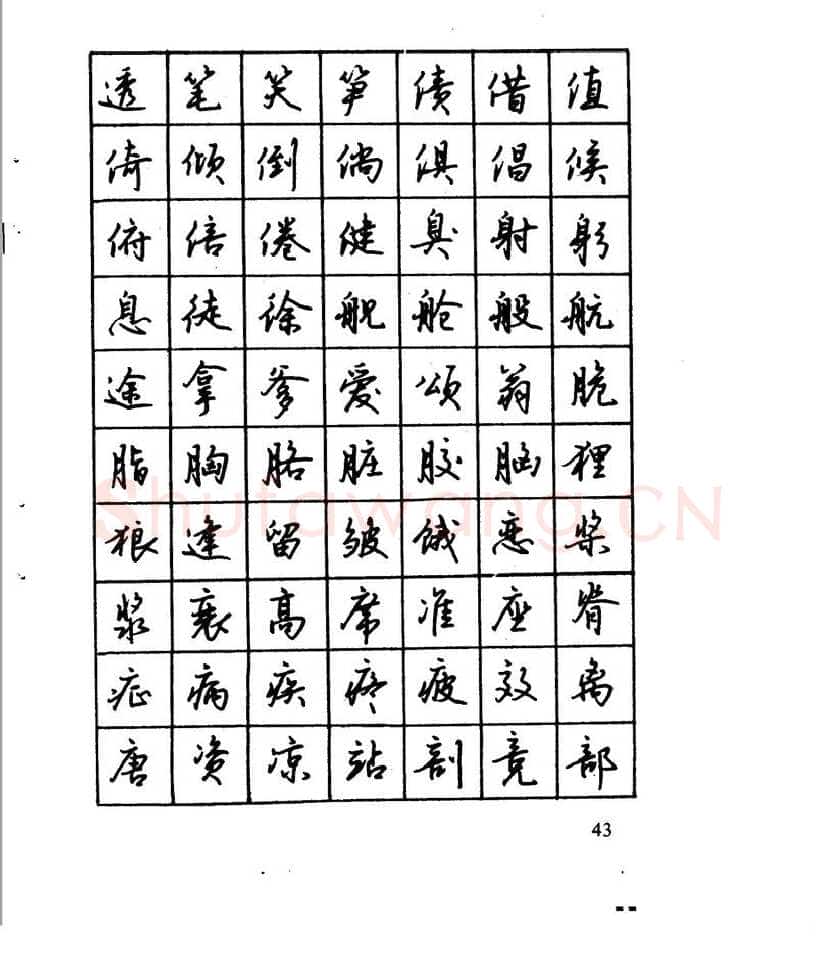 透 笔 笑 笋 债 借 值
倚 倾 倒 倘 俱 倡 候
俯 倍 倦 健 臭 射 躬
息 徒 徐 舰 舱 般 航
途 拿 爹 爱 颂 翁 脆
脂 胸 胳 脏 胶 脑 狸
狼 逢 留 皱 饿 恋 桨
浆 衰 高 席 准 座 脊
症 病 疾 疼 疲 效 离
唐 资 凉 站 剖 竟 部
43
Shufawang.CN